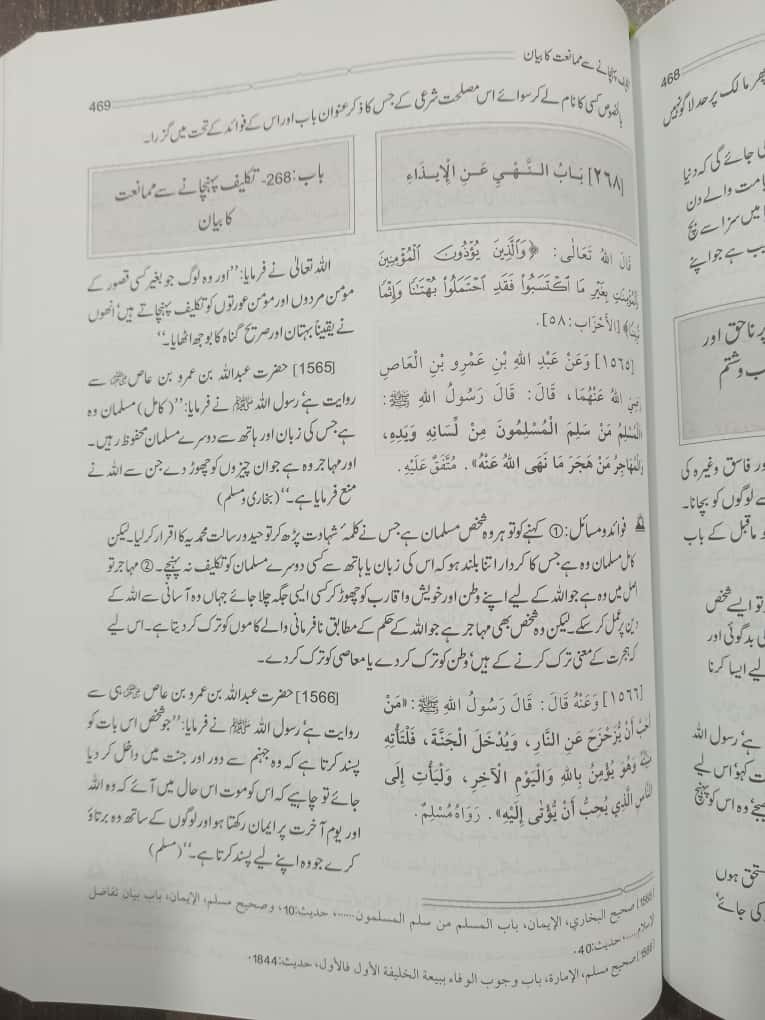 پہنچانے سے ممانعت کا بیان
469
بالخصوص کسی کا نام لے کر سوائے اس مصلحت شرعی کے جس کا ذکر عنوان باب اور اس کے فوائد کے تحت میں گزرا۔
[٢٦٨] بَابُ النَّهْيِ عَنِ الْإِيذَاءِ
باب:268- تکلیف پہنچانے سے ممانعت
کا بیان
قَالَ اللهُ تَعَالَى: ﴿وَٱلَّذِينَ يُؤْذُونَ ٱلْمُؤْمِنِينَ
وَٱلْمُؤْمِنَٰتِ بِغَيْرِ مَا ٱكْتَسَبُوا۟ فَقَدِ ٱحْتَمَلُوا۟ بُهْتَٰنًا وَإِثْمًا
مُّبِينًا﴾ [الأَحْزَاب:٥٨].
اللہ تعالیٰ نے فرمایا: ’’اور وہ لوگ جو بغیر کسی قصور کے
مومن مردوں اور مومن عورتوں کو تکلیف پہنچاتے ہیں‘ انھوں
نے یقیناً بہتان اور صریح گناہ کا بوجھ اٹھایا۔‘‘
[١٥٦٥] وَعَنْ عَبْدِ اللهِ بْنِ عَمْرِو بْنِ الْعَاصِ
رَضِيَ اللهُ عَنْهُمَا، قَالَ: قَالَ رَسُولُ اللهِ ﷺ:
الْمُسْلِمُ مَنْ سَلِمَ الْمُسْلِمُونَ مِنْ لِسَانِهِ وَيَدِهِ،
وَالْمُهَاجِرُ مَنْ هَجَرَ مَا نَهَى اللهُ عَنْهُ». مُتَّفَقٌ عَلَيْهِ.
[1565] حضرت عبداللہ بن عمرو بن عاص ؓ سے
روایت ہے‘ رسول اللہ ﷺ نے فرمایا: ’’(کامل) مسلمان وہ
ہے جس کی زبان اور ہاتھ سے دوسرے مسلمان محفوظ رہیں۔
اور مہاجر وہ ہے جو ان چیزوں کو چھوڑ دے جن سے اللہ نے
منع فرمایا ہے۔‘‘ (بخاری و مسلم)
فوائد و مسائل: ① کہنے کو تو ہر وہ شخص مسلمان ہے جس نے کلمۂ شہادت پڑھ کر توحید و رسالت محمدیہ کا اقرار کر لیا۔ لیکن
کامل مسلمان وہ ہے جس کا کردار اتنا بلند ہو کہ اس کی زبان یا ہاتھ سے کسی دوسرے مسلمان کو تکلیف نہ پہنچے۔ ② مہاجر تو
اصل میں وہ ہے جو اللہ کے لیے اپنے وطن اور خویش و اقارب کو چھوڑ کر کسی ایسی جگہ چلا جائے جہاں وہ آسانی سے اللہ کے
دین پر عمل کر سکے۔ لیکن وہ شخص بھی مہاجر ہے جو اللہ کے حکم کے مطابق نافرمانی والے کاموں کو ترک کر دیتا ہے۔ اس لیے
کہ ہجرت کے معنی ترک کرنے کے ہیں‘ وطن کو ترک کر دے یا معاصی کو ترک کر دے۔
[١٥٦٦] وَعَنْهُ قَالَ: قَالَ رَسُولُ اللهِ ﷺ: «مَنْ
أَحَبَّ أَنْ يُزَحْزَحَ عَنِ النَّارِ، وَيُدْخَلَ الْجَنَّةَ، فَلْتَأْتِهِ
وَهُوَ يُؤْمِنُ بِاللهِ وَالْيَوْمِ الْآخِرِ، وَلْيَأْتِ إِلَى
النَّاسِ الَّذِي يُحِبُّ أَنْ يُؤْتَى إِلَيْهِ». رَوَاهُ مُسْلِمٌ.
[1566] حضرت عبداللہ بن عمرو بن عاص ؓ ہی سے
روایت ہے‘ رسول اللہ ﷺ نے فرمایا: ’’جو شخص اس بات کو
پسند کرتا ہے کہ وہ جہنم سے دور اور جنت میں داخل کر دیا
جائے تو چاہیے کہ اس کو موت اس حال میں آئے کہ وہ اللہ
اور یوم آخرت پر ایمان رکھتا ہو اور لوگوں کے ساتھ وہ برتاؤ
کرے جو وہ اپنے لیے پسند کرتا ہے۔‘‘ (مسلم)
[1565] صحيح البخاري، الإيمان، باب المسلم من سلم المسلمون......، حديث:10، وصحيح مسلم، الإيمان، باب بيان تفاضل
الإسلام.....، حديث:40.
[1566] صحيح مسلم، الإمارة، باب وجوب الوفاء ببيعة الخليفة الأول فالأول، حديث:1844.
468
پھر مالک پر حد لاگو نہیں
کی جائے گی کہ دنیا
قیامت والے دن
میں سزا سے بچ
ہے جو اپنے
پر ناحق اور
وشتم
اور فاسق وغیرہ کی
سے لوگوں کو بچانا۔
ماقبل کے باب
تو ایسے شخص
کی بدگوئی اور
لیے ایسا کرنا
ہے‘ رسول اللہ
کہو‘ اس لیے
وہ اس کو پہنچ
مستحق ہوں
کی جائے‘